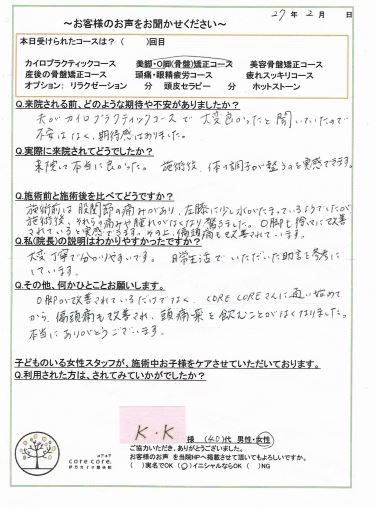 ～お客様のお声をお聞かせください～
27年 2月 日
本日受けられたコースは？( )回目
カイロプラクティックコース 美脚・O脚(骨盤)矯正コース 美容骨盤矯正コース
産後の骨盤矯正コース 頭痛・眼精疲労コース 疲れスッキリコース
オプション： リラクゼーション 分 頭皮セラピー 分 ホットストーン
Q.来院される前、どのような期待や不安がありましたか？
夫がカイロプラクティックコースで大変良かったと聞いていたので
不安はなく、期待感はありました。
Q.実際に来院されてどうでしたか？
来院して本当に良かった。施術後、体の調子が整うのを実感できます。
Q.施術前と施術後を比べてどうですか？
施術前は股関節の痛みがあり、左膝に少し水がたまっているようでしたが
施術後、それらの痛みや腫れがなくなり驚きました。O脚も徐々に改善
されていると実感できます。その上、偏頭痛も改善されています。
Q.私(院長)の説明はわかりやすかったですか？
大変丁寧で分かりやすいです。日常生活でいただいた助言を参考に
しています。
Q.その他、何かひとことお願いします。
O脚が改善されているだけではなく、CORE COREさんに通い始めて
から、偏頭痛も改善され、頭痛薬を飲むことがなくなりました。
本当にありがとうございます。
子どものいる女性スタッフが、施術中お子様をケアさせていただいております。
Q.利用された方は、されてみていかがでしたか？
K・K 様 (40)代 男性・女性
ご協力いただき、ありがとうございました。
お客様のお声 を当院HPへ掲載させて頂いてもよろしいですか。
( )実名でOK (○)イニシャルならOK ( )NG
コアコア
core core.